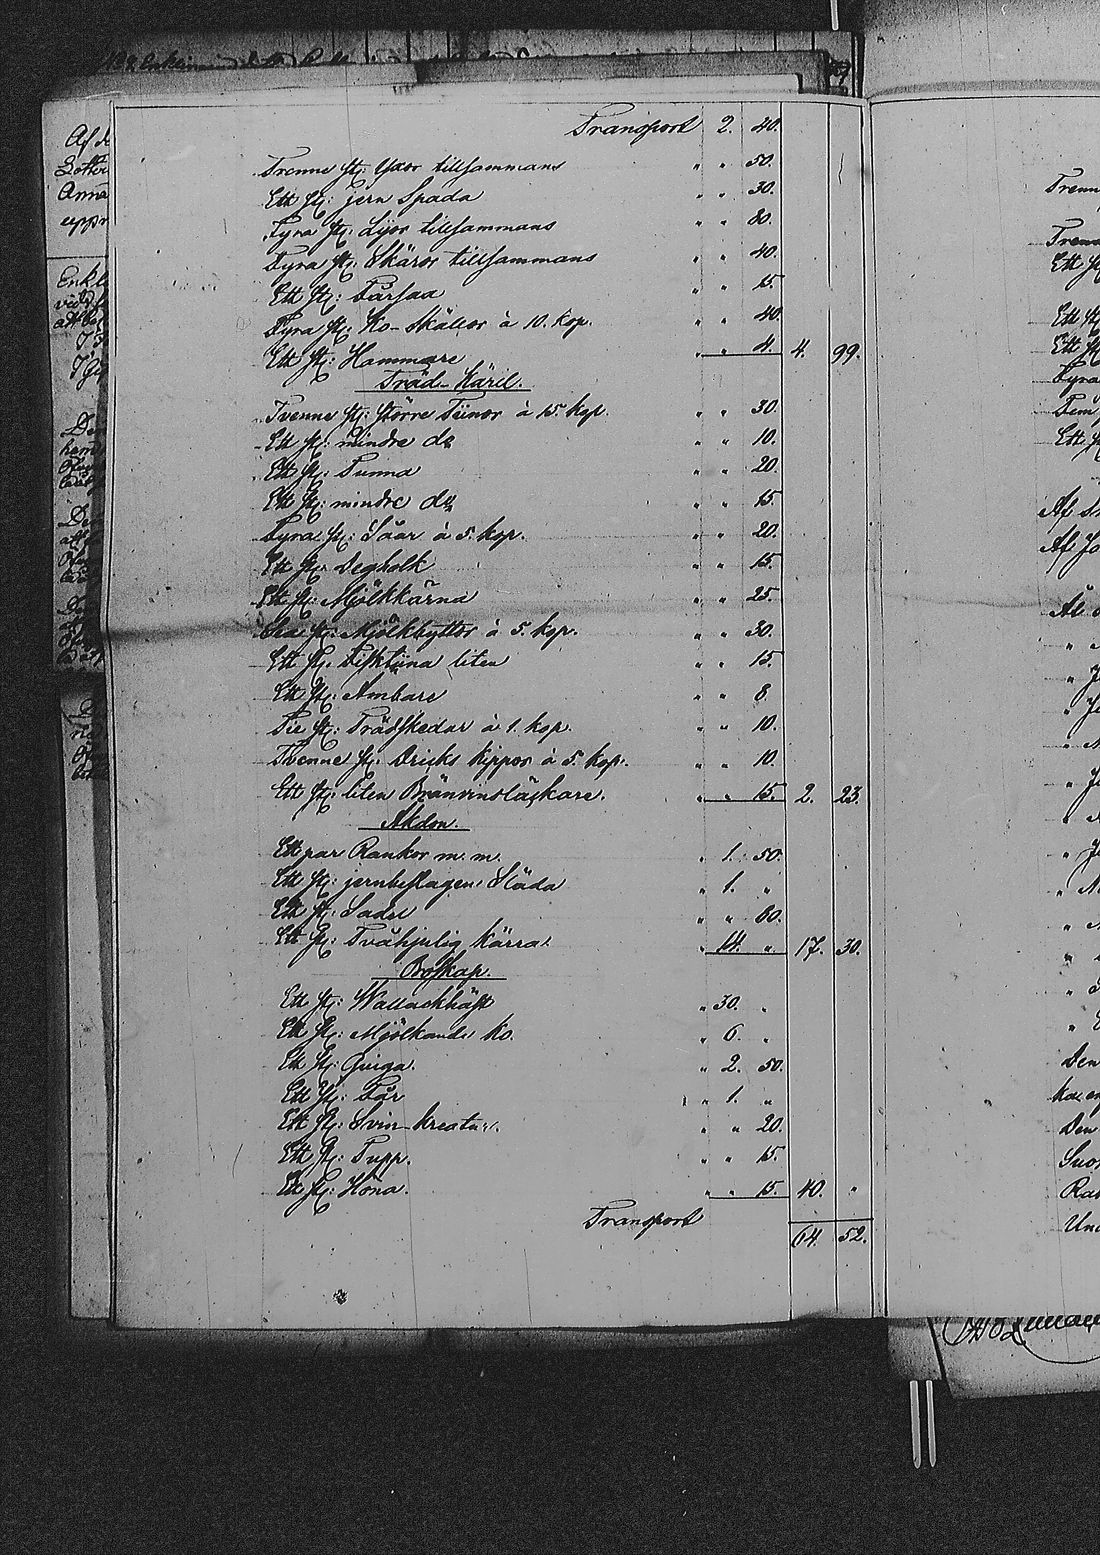 Transport 2. 40.
Trenne st: Yxor tillsammans " " 50.
Ett st: jern Spada " " 30.
Fyra st: Lijor tillsammans " " 80.
Fyra st: Skäror tillsammans " " 40.
Ett st: Fårsax " " 15.
Fyra st: Ko-Skällor à 10. kop. " " 40
Ett st: Hammare " " 4. 4. 99.
Träd-Käril.
Tvenne st: större Tiinor à 15. kop. " " 30.
Ett st: mindre do " " 10.
Ett st: Tunna " " 20.
Ett st: mindre do " " 15.
Fyra st: Såar à 5. kop. " " 20.
Ett st: Degholk " " 15.
Ett st: Mjölkkärna " " 25.
Sex st: Mjölkbyttor à 5. kop. " " 30.
Ett st: Fisktiina liten " " 15.
Ett st: Ämbare " " 8
Tie st: Trädskedar à 1. kop. " " 10.
Tvenne st: Dricks kippor à 5. kop. " " 10.
Ett st: liten Bränvinsläckare. " " 15. 2. 23.
Åkdon.
Ett par Rankor m. m. " 1. 50.
Ett st: jernbeslagen Släda " 1. "
Ett st: Sadel " " 80.
Ett st: Tvåhjulig Kärra " 14. " 17. 30.
Boskap.
Ett st: Wallackhäst " 30. "
Ett st: Mjölkande Ko. " 6. "
Ett st: Qviga. " 2. 50.
Ett st: Får " 1. "
Ett st: Svin-kreatur. " " 20.
Ett st: Tupp. " " 15.
Ett st: Höna. " " 15. 40. "
Transport 64. 52.
Ett st
Ett st
Ett st
Fyra
Fem
Ett st
Af
Af Jo
Den
Den